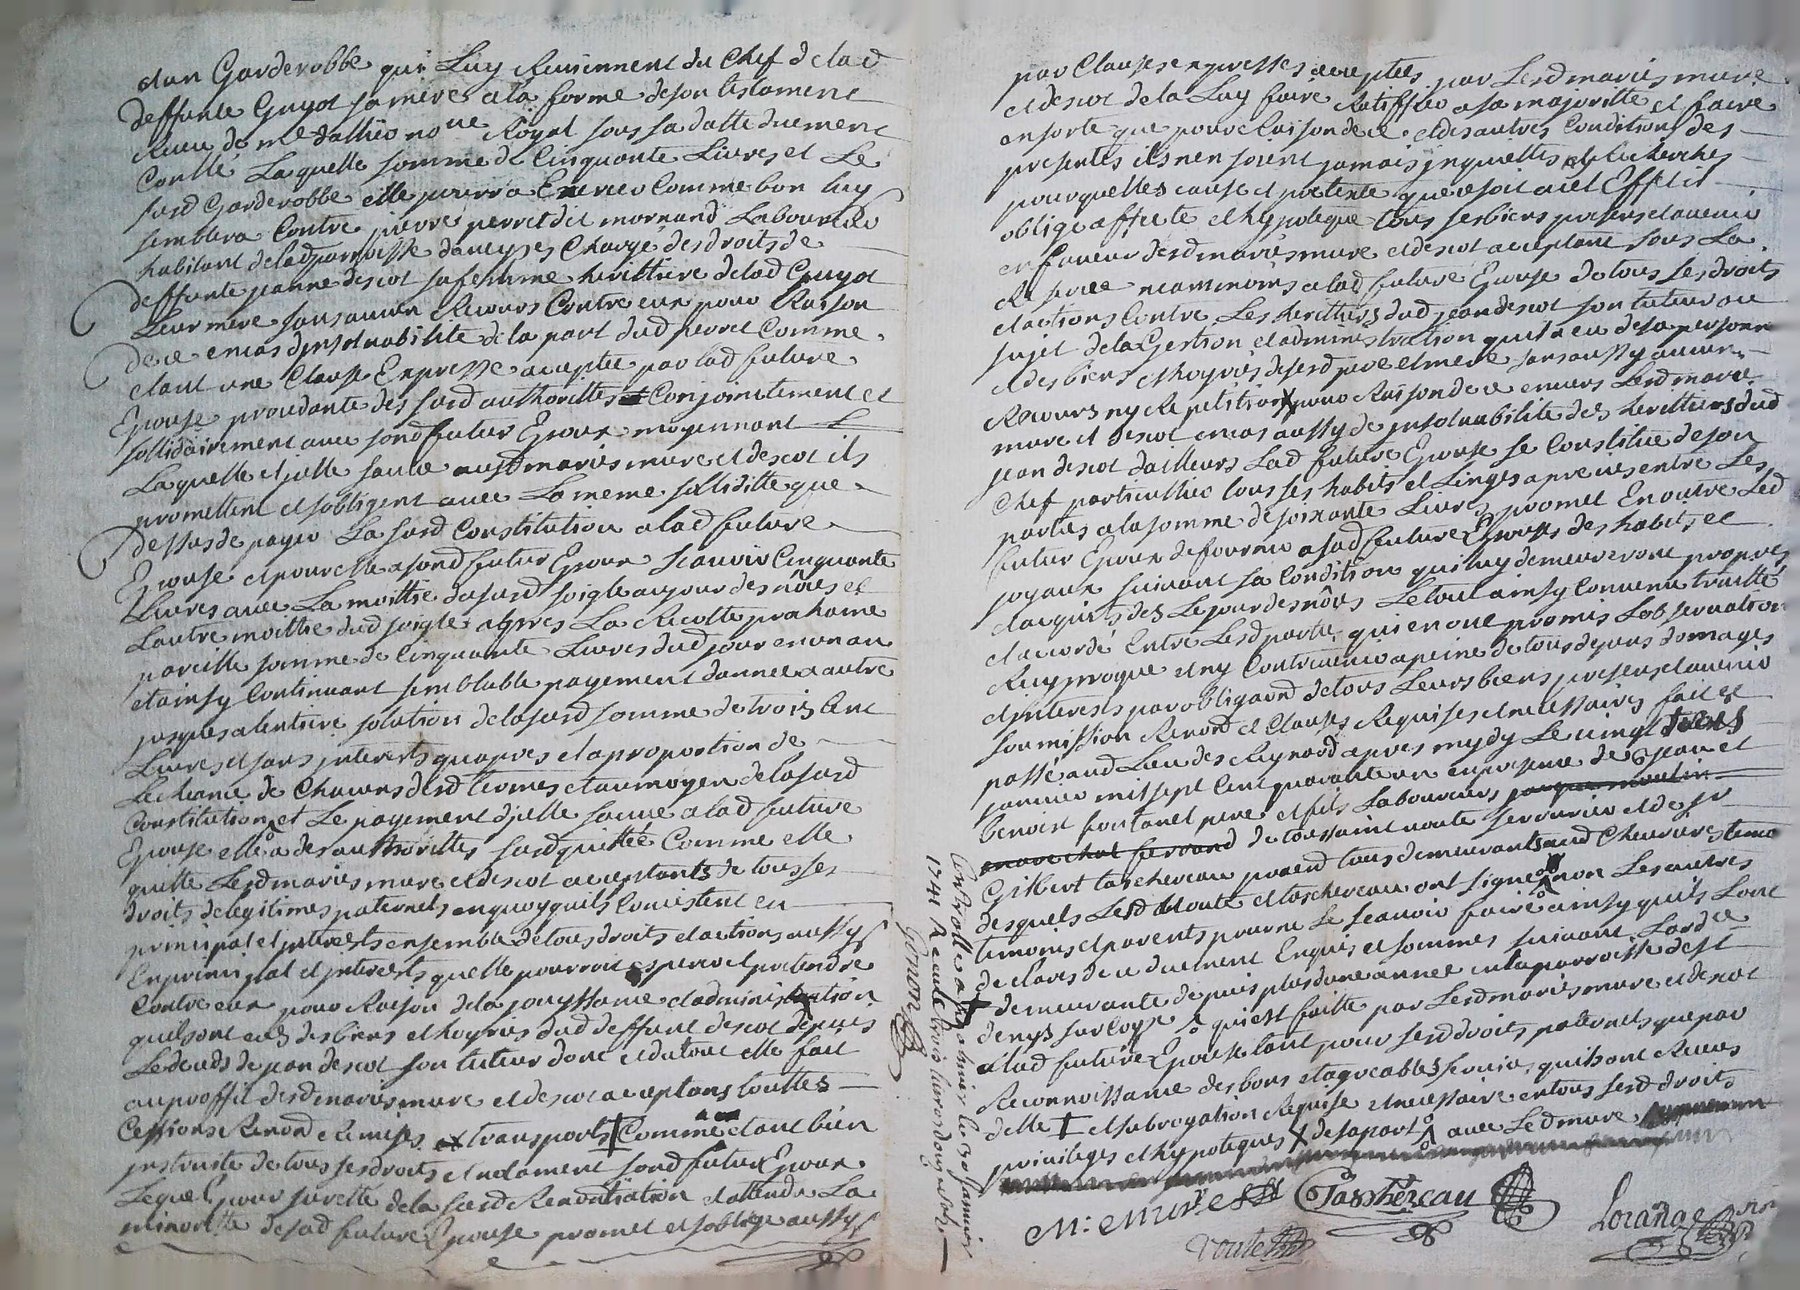 dun Garderobbe qui Luy Reuiennent du Chef de lad
deffunte Guyot sa mere a la forme de son testament
Receu de me dallier noue Royal sous sa datte duement
Conllé Laquelle somme de Cinquante Liures et Le
susd Garderobbe elle pourra Exerser Comme bon luy
semblera Contre pierre perret dit mornand Laboureur
habitant de lad parroisse Chargé des droits de
deffunte jeanne descot sa femme herittiere de lad Guyot
Leur mere sans aucun Recours Contre eux pour Raison
de ce en cas dinsoluabilité de la part dud perret Comme
etant une Clause Expresse aceptée par lad future
Epouse procedante des susd authorittes Conjointement et
sollidairement auec sond futur Epoux moyennant
Laquelle et jcelle sauue ausd mariés mure et descot ils
promettent et sobligent auec La meme solidité que
dessus de payer La susd Constitution a lad future
Epouse et pour elle a sond futur Epoux scauoir Cinquante
Liures auec La moittié dususd soigle au jour des nôces et
Lautre moittié dud soigle apres La Recolte prochaine
pareille somme de Cinquante Liures dud jour en un an
et ainsy Continuant semblable payement dannee a autre
jusques a lentiere solution de la susd somme de trois Cent
Liures et sans jnterests quapres et a proportion de
Lecheance de Chacuns desd termes et au moyen de la susd
Constitution et Le payement djcelle sauue a lad future
Epouse elle a des authorittes susd quittée Comme elle
quitte Lesd mariés mure et descot aceptants de tous ses
droits de legitimes paternels en quoy quils Consistent en
principal et jnterests ensemble de tous droits et actions aussy
En principal et jnterests quelle pourroit esperer et pretendre
Contre eux pour Raison de la jouyssance et administration
quils ont eues des biens et hoyries dud deffunt descot depuis
Le deceds de jean descot son tuteur dont et du tout elle fait
au proffit desd mariés mure et descot aceptans touttes
Cessions Renond Remises et transports Comme etant bien
jnstruite de tous ses droits et notament sond futur Epoux
Lequel pour surette de la susd Renontiation et attendu La
minorité de sad future Epouse promet et soblige aussy
Gernon
Controllé a st abnier le 30 januier
1741 Recu quatre liures douze sols
par Clause expresse aceptée par Lesd mariés mure
et descot de la Luy faire Rattiffier a sa majoritté et faire
en sorte que pour Raison de ce et des autres Conditions des
presentes ils nen soient jamais jnquiettés ny Recherchés
pour quelles cause et pretexte que ce soit a cet Effet il
oblige affecte et hypoteque tous ses biens presens et auenir
en faueur desd mariés mure et descot aceptant sous La
Reserue neanmoins a lad future Epouse de tous ses droits
et actions Contre Les heritiers dud jean descot son tuteur au
sujet de la Gestion et administration quil a eu de sa personne
et des biens et hoyries de sesd pere et mere sans aussy aucun
Recours ny Repetition pour Raison de ce enuers Lesd mariés
mure et descot en cas aussy de jnsoluabilité des herittiers dud
jean descot dailleurs Lad future Epouse se Constitue de son
Chef particullier tous ses habits et Linges apreciés entre Les
parties a la somme de soixante Liures promet En outre Led
futur Epoux de fournir a sad future Epouse des habits et
joyaux suiuant sa Condition qui luy demeureront propres
et acquits dés Le jour des nôces Le tout ainsy Conuenu traitté
et accordé Entre Lesd parties qui en ont promis Lobseruation
Reciproque et ny Contreuenir a peine de tous depens domages
et jnterests par obligaond de tous Leurs biens presens et auenir
soumission Renond et Clauses Requises et necessaires fait et
passé aud Lieu des Reynaud apres mydy Le uingt trois
januier mil sept Cent quarante un en presence de jean et
benoist fontanel pere et fils Laboureurs
de toussaint uoute serrurier et de sr
Gilbert taschereau praend tous demeurants aud Cheurieres temo
desquels Lesd Uoute et taschereau ont signé non Les autres
temoins et parents pour ne Le scauoir faire ainsy quils Lont
declarés de ce duement Enquis et sommés suiuant Lordce
+ demeurante depuis plus dune année en la parroisse de st
denys sur Coyse qui est faitte par Lesd mariés mure et descot
a lad future Epouse tant pour sesd droits paternels que par
Reconnoissance des bons et agreables seruices quils ont Receus
delle + et subrogation Requise et necessaire en tous sesd droits
priuileges et hypoteques X de sa part auec Led mure
M: Mure
Taschereau
Uoute
Lorange